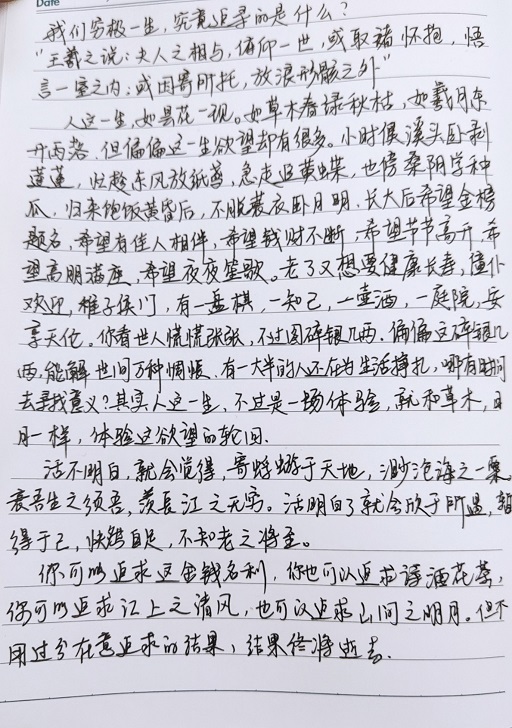 Date
我们穷极一生，究竟追寻的是什么？
"王羲之说：夫人之相与，俯仰一世，或取诸怀抱，悟
言一室之内；或因寄所托，放浪形骸之外"
人这一生，如昙花一现。如草木春绿秋枯，如羲月东
升西落，但偏偏这一生欲望却有很多。小时候溪头卧剥
莲蓬，忙趁东风放纸鸢，急走追黄蝶，也傍桑阴学种
瓜，归来饱饭黄昏后，不脱蓑衣卧月明。长大后希望金榜
题名，希望有佳人相伴，希望钱财不断，希望节节高升，希
望高朋满座，希望夜夜笙歌。老了又想要健康长寿，僮仆
欢迎，稚子候门，有一盘棋，一知己，一壶酒，一庭院，安
享天伦。你看世人慌慌张张，不过图碎银几两。偏偏这碎银几
两，能解世间万种惆怅，有一大半的人还在为生活挣扎，哪有时间
去寻找意义？其实人这一生，不过是一场体验，就和草木，日
月一样，体验这欲望的轮回。
活不明白，就会觉得，寄蜉蝣于天地，渺沧海之一粟。
哀吾生之须臾，羡长江之无穷。活明白了就会欣于所遇，暂
得于己，快然自足，不知老之将至。
你可以追求这金钱名利，你也可以追求诗酒花茶，
你可以追求江上之清风，也可以追求山间之明月。但不
用过分在意追求的结果，结果终将逝去。